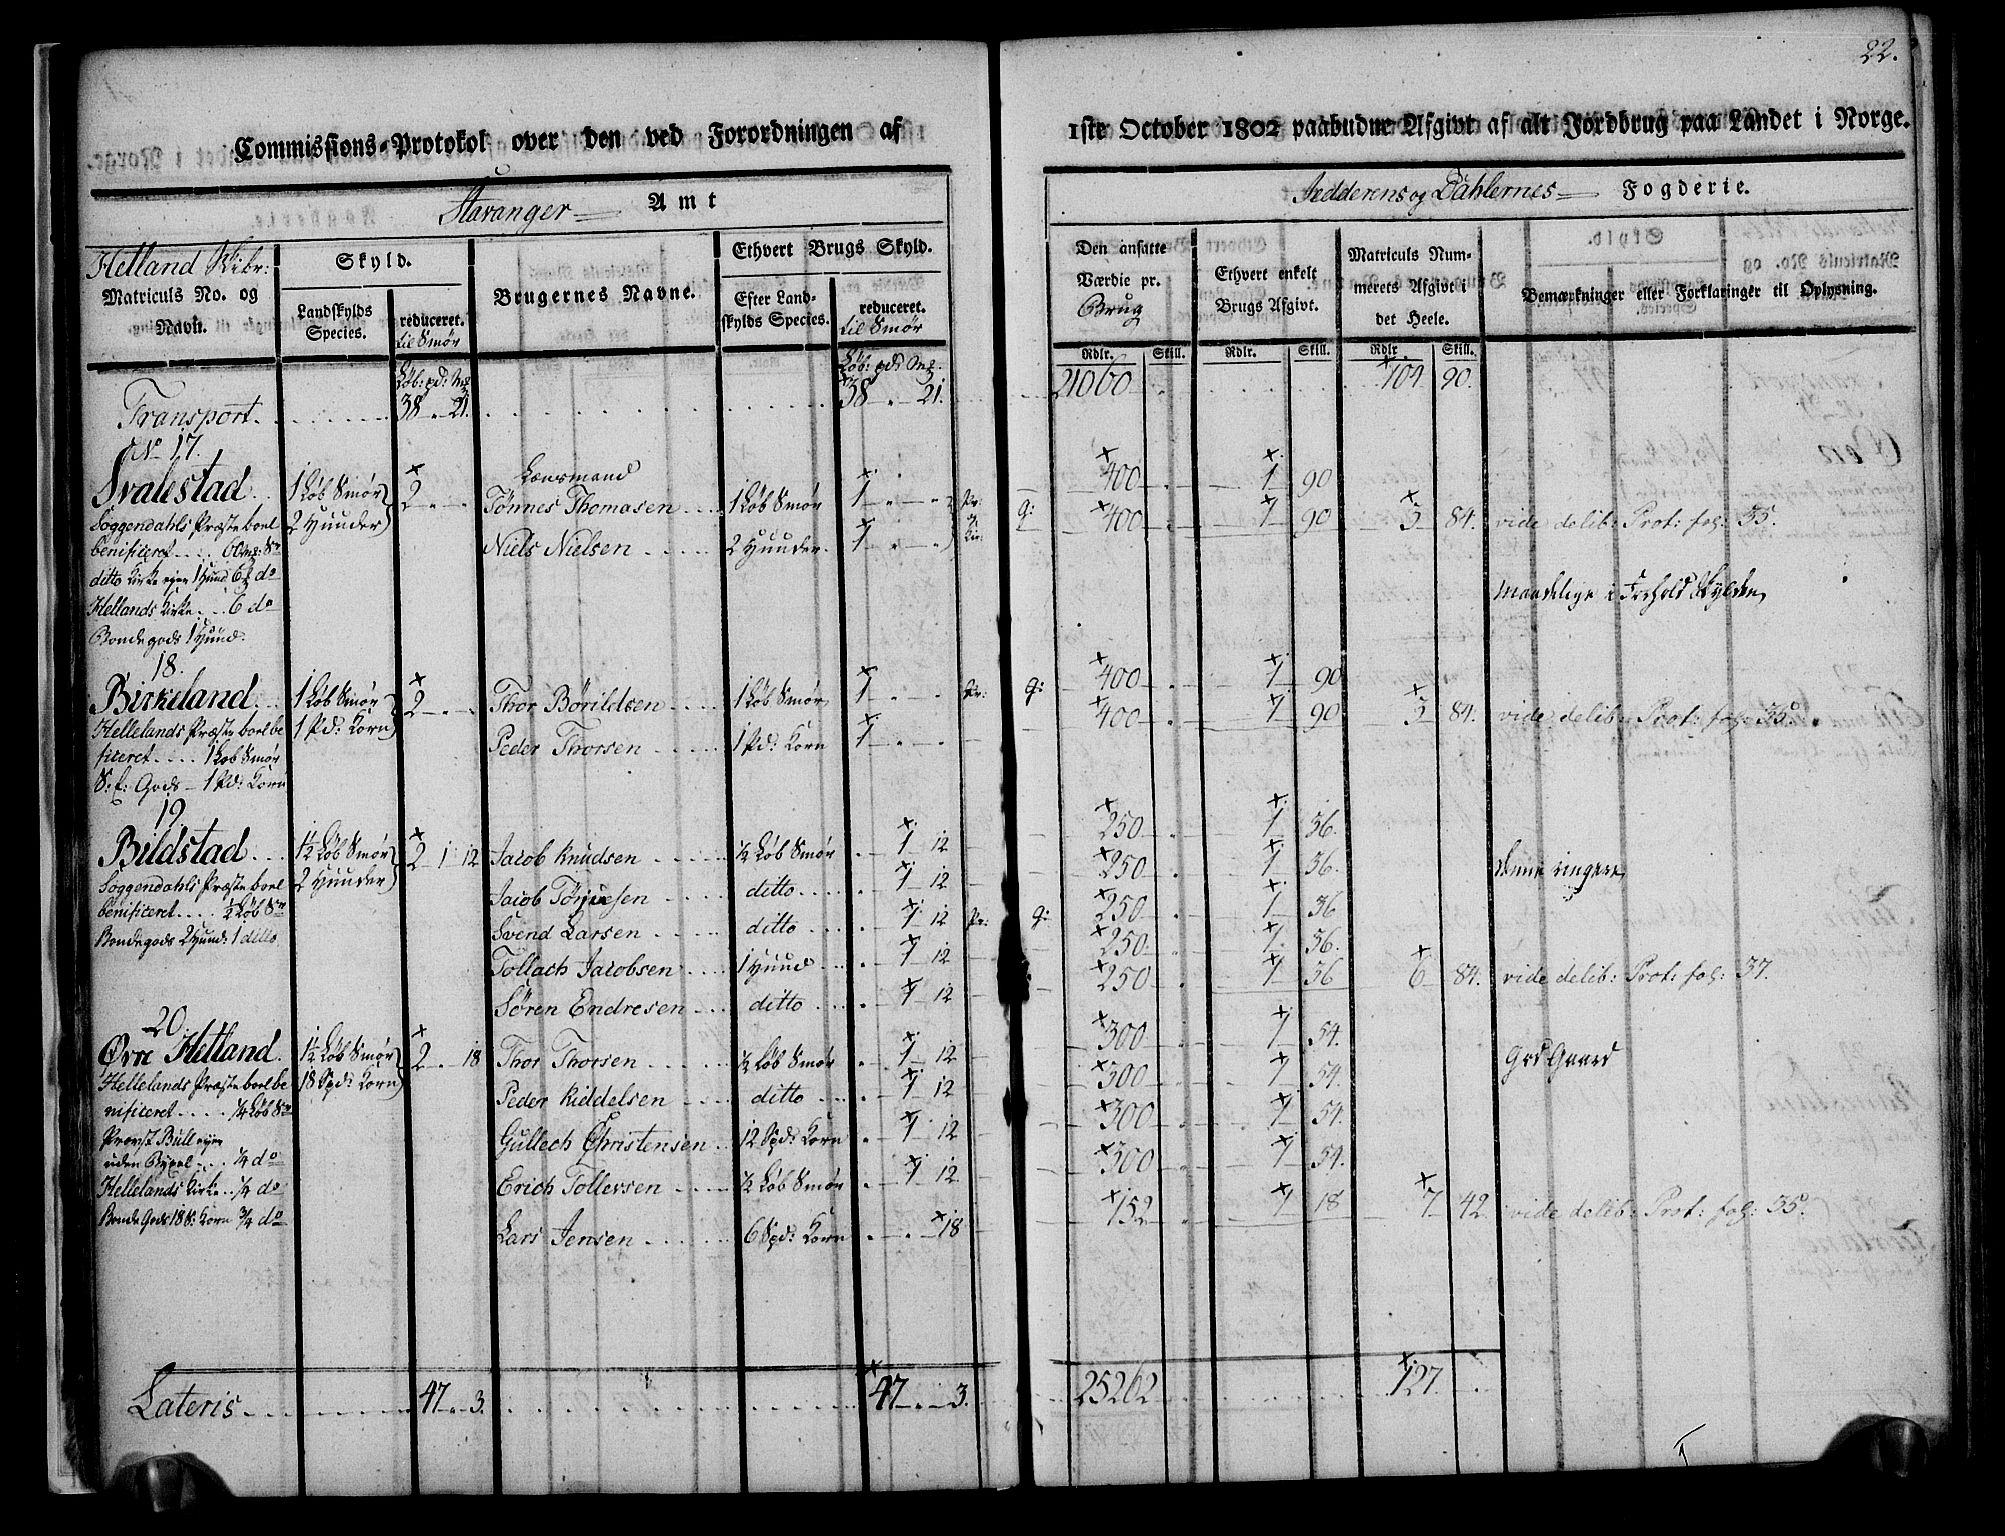 22.
Commissions-Protokol over den ved Forordningen af
1ste October 1802 paabudne Afgivt af alt Jordbrug paa Landet i Norge.
Stavanger Amt
Jedderens og Dahlernes Fogderie.
Helland Skibr:
Matriculs No. og Navn.
Skyld.
Landskylds Species.
reduceret.
til Smør
Brugernes Navne.
Ethvert Brugs Skyld.
Efter Landskylds Species.
reduceret.
til Smør
Den ansatte Værdie pr.
Brug
Ethvert enkelt Brugs Afgivt.
Matriculs Nummerets Afgivt i det Heele.
Bemærkninger eller Forklaringer til Oplysning.
Løb: pd: Mk
Løb: pd: Mk.
Rdlr. Skill. Rdlr. Skill. Rdlr. Skill.
Transport. 38 " 21. 38 " 21. 21060 104 90.
No 17.
Svalestad 1 Løb Smør 2 Lænsmand
Tønnes Thomasen 1 Løb Smør 1 400 1 90
Soggendahls Præsteboel 2 Huuder
benificeret 6 Mk: Sr Niels Nielsen 2 Huuder 1 400 1 90 3 84. vide delib: Prot: fol: 35.
ditto Kirke ejer 1 Huud 6 do
Hellands Kirke 6 do
Maadelige i Forhold Skylden
Bondegods 1 Huud.
18.
Birkeland 1 Løb Smør 2 Thor Børildsen 1 Løb Smør 1 400 1 90
Hellelands Præsteboel be 1 Pd: Korn
ficeret 1 Løb Smør Peder Thorsen 1 Pd: Korn 1 400 1 90 3 84. vide delib: Prot: fol: 35.
S: f: Gods 1 Pd: Korn
19.
Bildstad 1½ Løb Smør 2 1 12 Jacob Knudsen ½ Løb Smør 1 12 250 1 36.
Soggendahls Præsteboel 2 Huuder Jacob Tønnesen ditto 1 12 250 1 36. denne ringere
benificeret ½ Løb Sr Svend Larsen ditto 1 12 250 1 36
Bondegods 2 Huud: 1 ditto Tollach Jacobsen 1 Huud 1 12 250 1 36.
Søren Endresen ditto 1 12 250 1 36 6 84. vide delib: Prot: fol: 37.
20.
Øvre Helland 1½ Løb Smør 2 18 Thor Thorsen ½ Løb Smør 1 12 300 1 54.
Hellelands Præsteboel be 18 Spd: Korn Peder Kiddelsen ditto 1 12 300 1 54. God Gaard
nificeret ¼ Løb Sr Gullech Christensen 12 Spd: Korn 1 12 300 1 54.
Provst Bull ejer
uden Bygsel ¼ do Erich Tollevsen ½ Løb Smør 1 12 300 1 54.
Hellelands Kirke ¼ do
Bonde Gods 18 S: Korn ¾ do Lars Jensen 6 Spd: Korn 18 152 1 18 7 42 vide delib: Prot: fol: 35.
Lateris 47 " 3. 47 " 3. 25262 127.